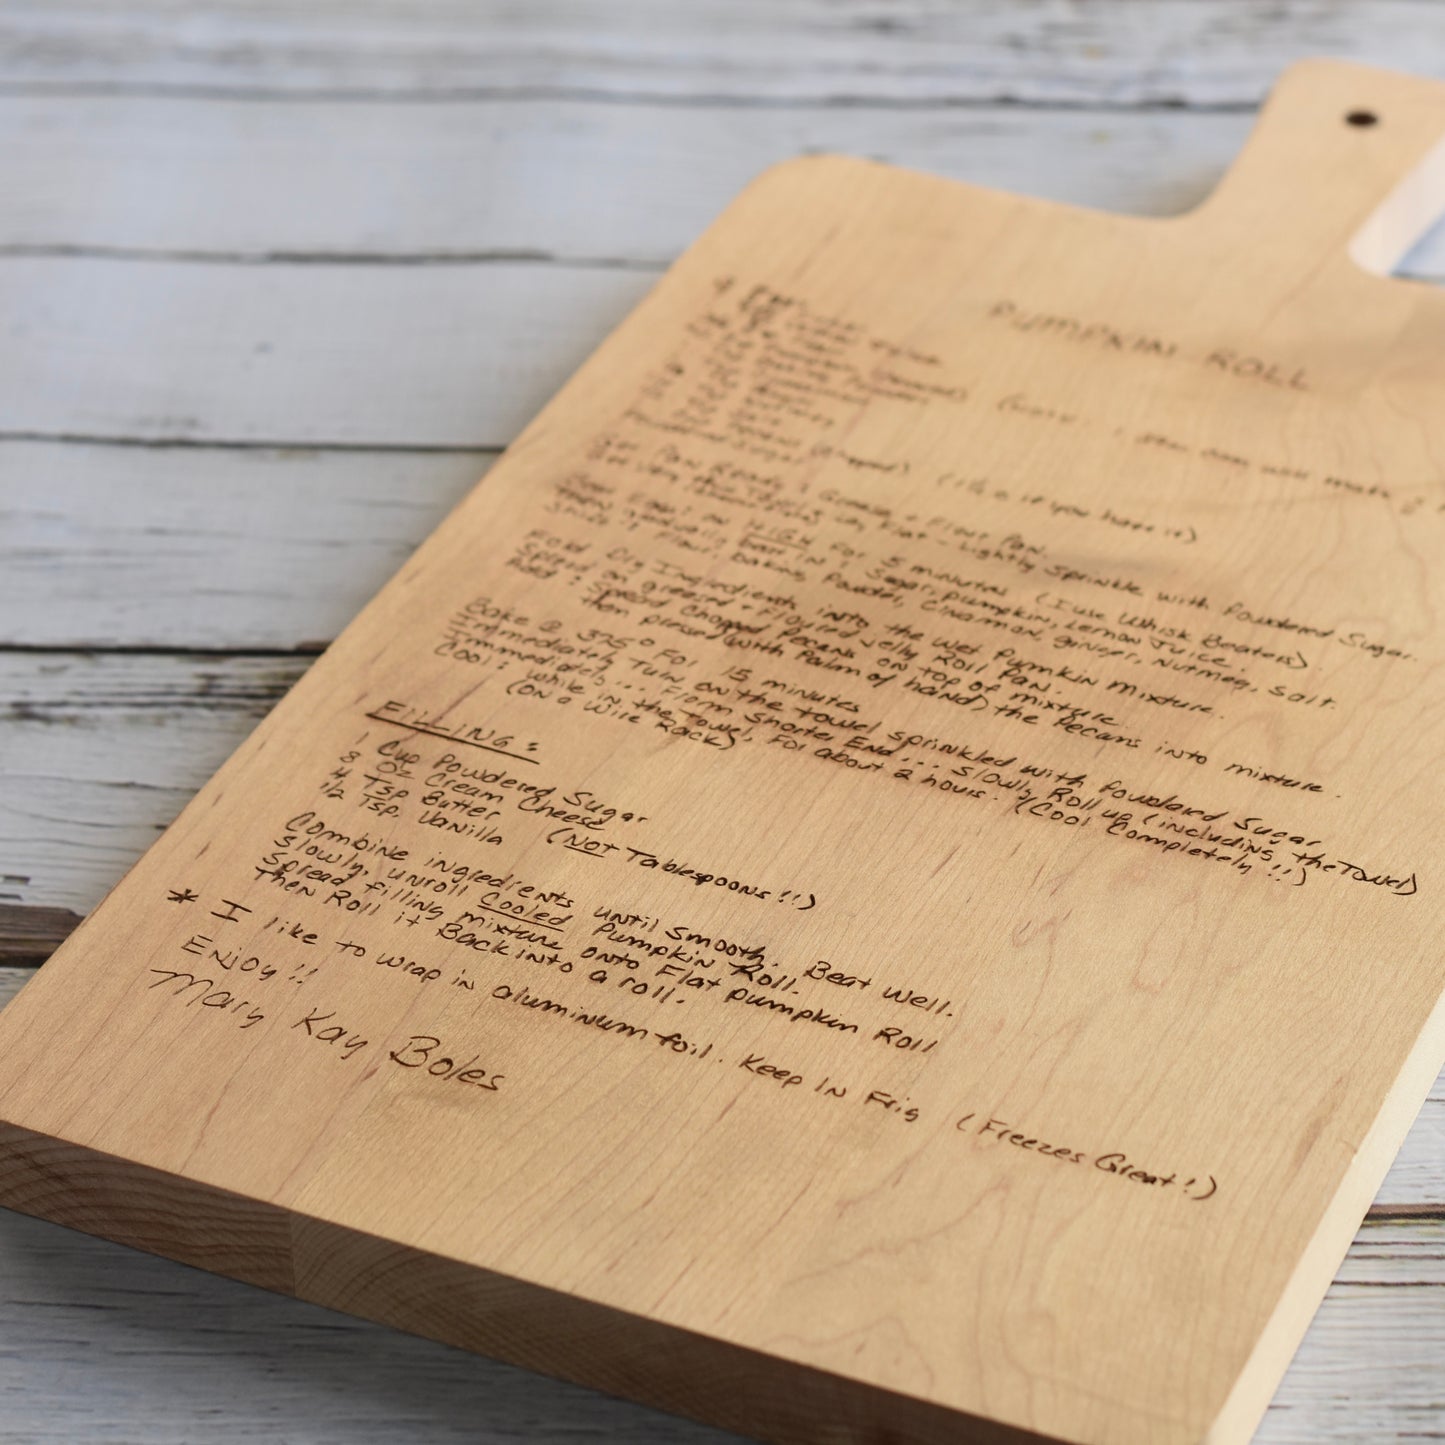 PUMPKIN ROLL
Pumpkin (canned)
Baking Powder
Cinnamon
Ginger
Nutmeg
Salt
Pecans (chopped) (if you have it)
Powdered Sugar
Get Pan Ready: Grease + Flour Pan.
Flat - Lightly sprinkle with Powdered Sugar.
Beat Eggs on HIGH For 5 minutes (I use Whisk Beaters).
Then gradually beat in: Sugar, pumpkin, Lemon Juice.
Flour, baking Powder, Cinnamon, ginger, Nutmeg, Salt.
Fold Dry Ingredients into the wet Pumkin mixture.
Spread on greased + Floured Jelly Roll Pan.
Add: Spread Chopped Pecans on top of mixture...
then press (with Palm of hand) the Pecans into mixture.
Bake @ 375° For 15 minutes
Immediately Turn on the towel sprinkled with Powdered Sugar
Immediately... From Shorter End... Slowly Roll up (including the Towel)
Cool: while in the Towel, For about 2 hours. (Cool Completely!!)
(On a Wire Rack)
FILLING:
1 Cup Powdered Sugar
8 Oz Cream Cheese
4 Tsp Butter (Not Tablespoons!!)
1/2 Tsp. Vanilla
Combine ingredients until smooth. Beat well.
Slowly, unroll Cooled Pumpkin Roll.
Spread filling mixture onto Flat pumpkin Roll
Then Roll it Back into a roll.
* I like to wrap in aluminum foil. Keep In Frig (Freezes Great!)
Enjoy!!
Mary Kay Boles